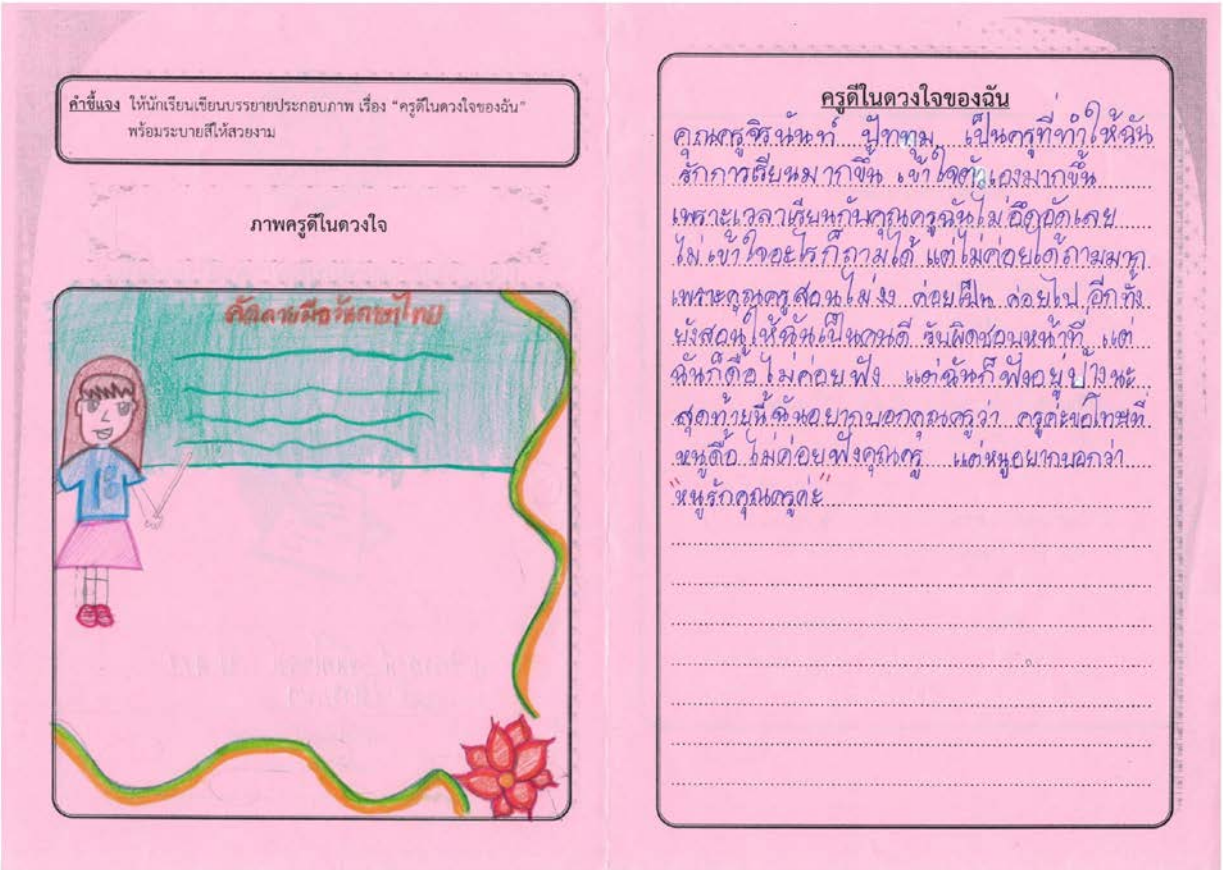 คำชี้แจง ให้นักเรียนเขียนบรรยายประกอบภาพ เรื่อง "ครูดีในดวงใจของฉัน"
พร้อมระบายสีให้สวยงาม
ภาพครูดีในดวงใจ
คัดลายมือวันภาษาไทย
ครูดีในดวงใจของฉัน
คุณครูจิรนันท์ ปัททุม เป็นครูที่ทำให้ฉัน
รักการเรียนมากขึ้น เข้าใจตัวเองมากขึ้น
เพราะเวลาเรียนกับคุณครูฉันไม่อึดอัดเลย
ไม่เข้าใจอะไรก็ถามได้ แต่ไม่ค่อยได้ถามมาก
เพราะคุณครูสอนไม่งง ค่อยเป็น ค่อยไป อีกทั้ง
ยังสอนให้ฉันเป็นคนดี รับผิดชอบหน้าที่ แต่
ฉันก็ดื้อ ไม่ค่อยฟัง แต่ฉันก็ฟังอยู่บ้างนะ
สุดท้ายนี้ฉันอยากบอกคุณครูว่า ครูค่ะขอโทษที่
หนูดื้อ ไม่ค่อยฟังคุณครู แต่หนูอยากบอกว่า
"หนูรักคุณครูค่ะ"